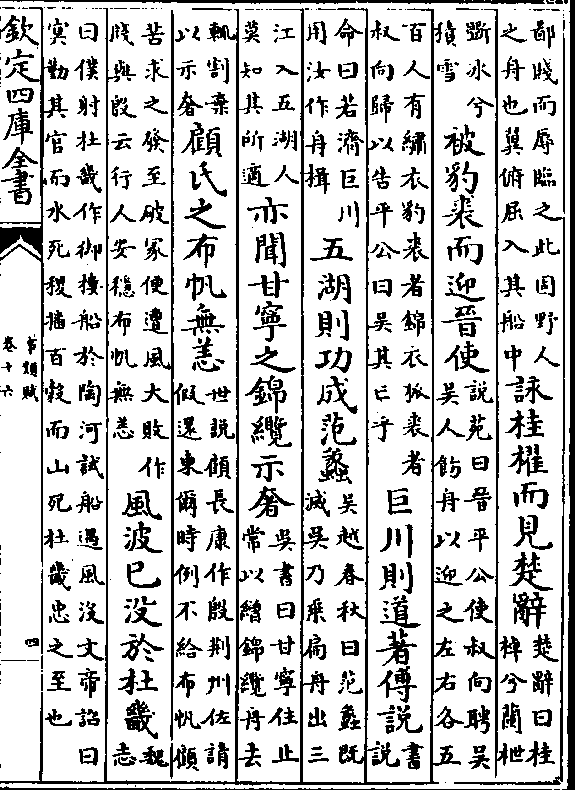 鄙賤而辱臨之此固野人之舟也冀俯屈入其船中詠桂櫂而見楚辭楚辭曰桂棹兮蘭枻
斲冰兮積雪被豹裘而迎晉使說苑曰晉平公使叔向聘吳吳人飭舟以迎之左右各五
百人有繡衣豹裘者錦衣狐裘者叔向歸以告平公曰吳其亡乎巨川則道著傅說書說
命曰若濟巨川用汝作舟楫五湖則功成范蠡吳越春秋曰范蠡既滅吳乃乘扁舟出三
江入五湖人莫知其所適亦聞甘寧之錦纜示奢吳書曰甘寧住止常以繒錦纜舟去
輒割棄以示奢顧氏之布帆無恙世說顧長康作殷荆州佐請假還東爾時例不給布帆顧
苦求之發至破冢便遭風大敗作牋與殷云行人安穩布帆無恙風波已没於杜畿魏志
曰僕射杜畿作御樓船於陶河試船遇風没文帝詔曰冥勤其官而水死稷播百穀而山死杜畿忠之至也
欽定四庫全書
事類賦
卷十六
四